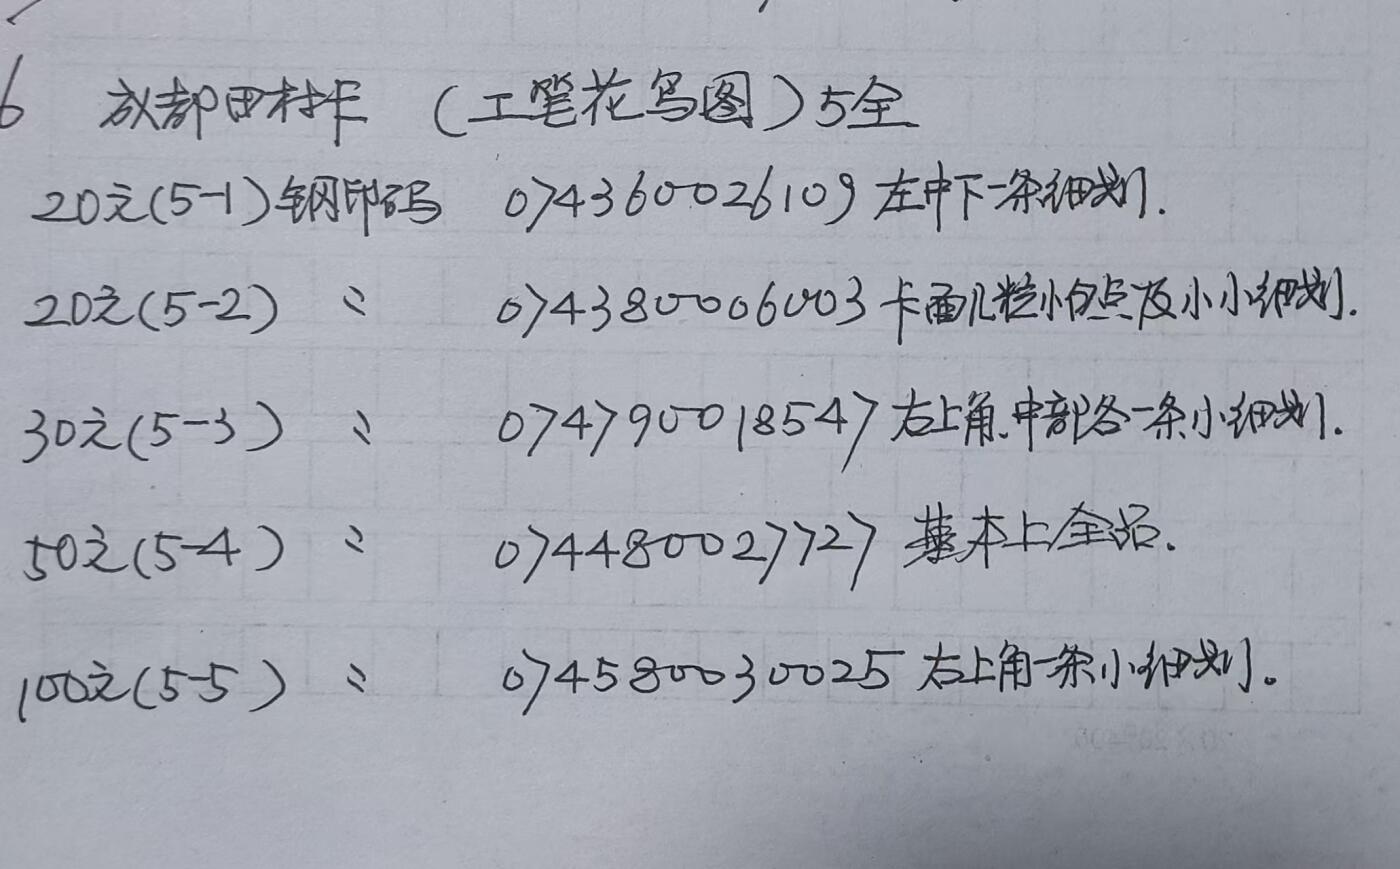 6 成都田村卡 (工笔花鸟图)5全
20元(5-1)钢印码 074360026109 左中下一条细划.
20元(5-2) 〃 074380006003 卡面几粒小白点及小小细划.
30元(5-3) 〃 074790018547 右上角.中部各一条小细划.
50元(5-4) 〃 074480027727 基本上全品.
100元(5-5) 〃 074580030025 右上角一条小细划。